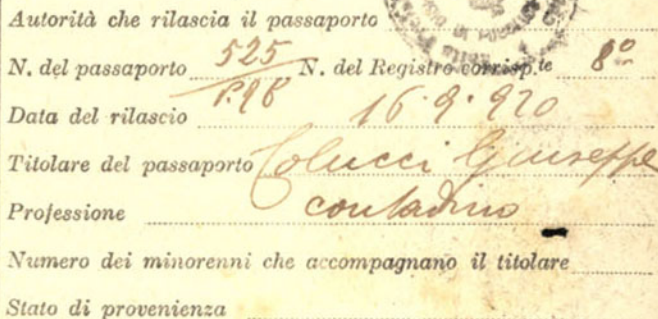 Autorità che rilascia il passaporto
N. del passaporto 525 N. del Registro corrisp.te 8º
P. 98
Data del rilascio 16.9.920
Titolare del passaporto Colucci Giuseppe
Professione contadino
Numero dei minorenni che accompagnano il titolare
Stato di provenienza